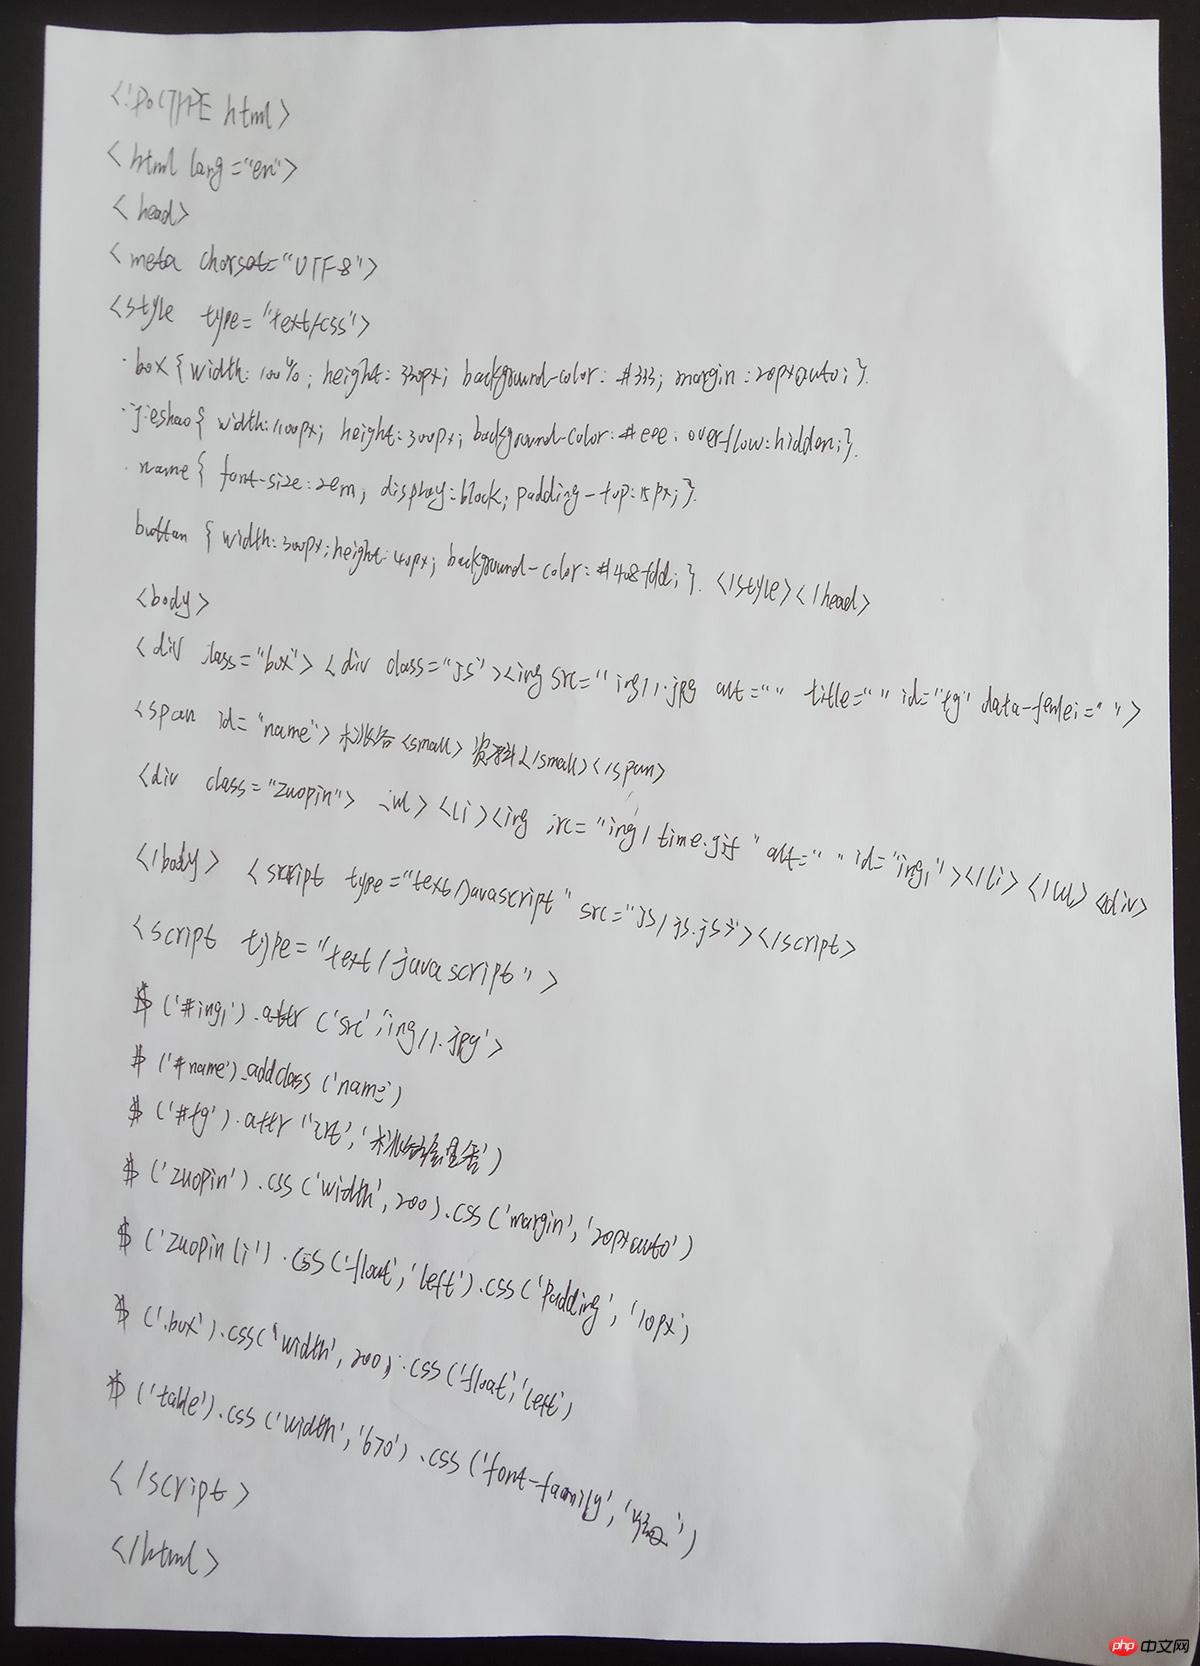 <!DOCTYPE html>
<html lang="en">
<head>
<meta charset="UTF-8">
<style type="text/css">
.box{width:100%; height:330px; background-color:#333; margin:20px auto;}
.jieshao{width:1100px; height:300px; background-color:#eee; overflow:hidden;}
.name{font-size:2em; display:block; padding-top:15px;}
button {width:300px;height:40px; background-color:#408fdd;} </style></head>
<body>
<div class="box"><div class="js"><img src="img/1.jpg alt=" " title=" " id="tg" data-fenlei=" ">
<span id="name"> <small>资料</small></span>
<div class="zuopin"> ul><li><img src="img/time.gif" alt=" " id="img1"></li></ul><div>
</body> <script type="text/javascript" src="js/js.js"></script>
<script type="text/javascript">
$('#img1').attr('src','img/1.jpg'>
$('#name').addclass('name')
$('#tg').attr
$('zuopin').css('width',200).css('margin','20px auto')
$('zuopin li').css('float','left').css('padding','10px')
$('.box').css('width',200).css('float','left')
$('table').css('width','670').css('font-family',
</script>
</html>
php 中文网